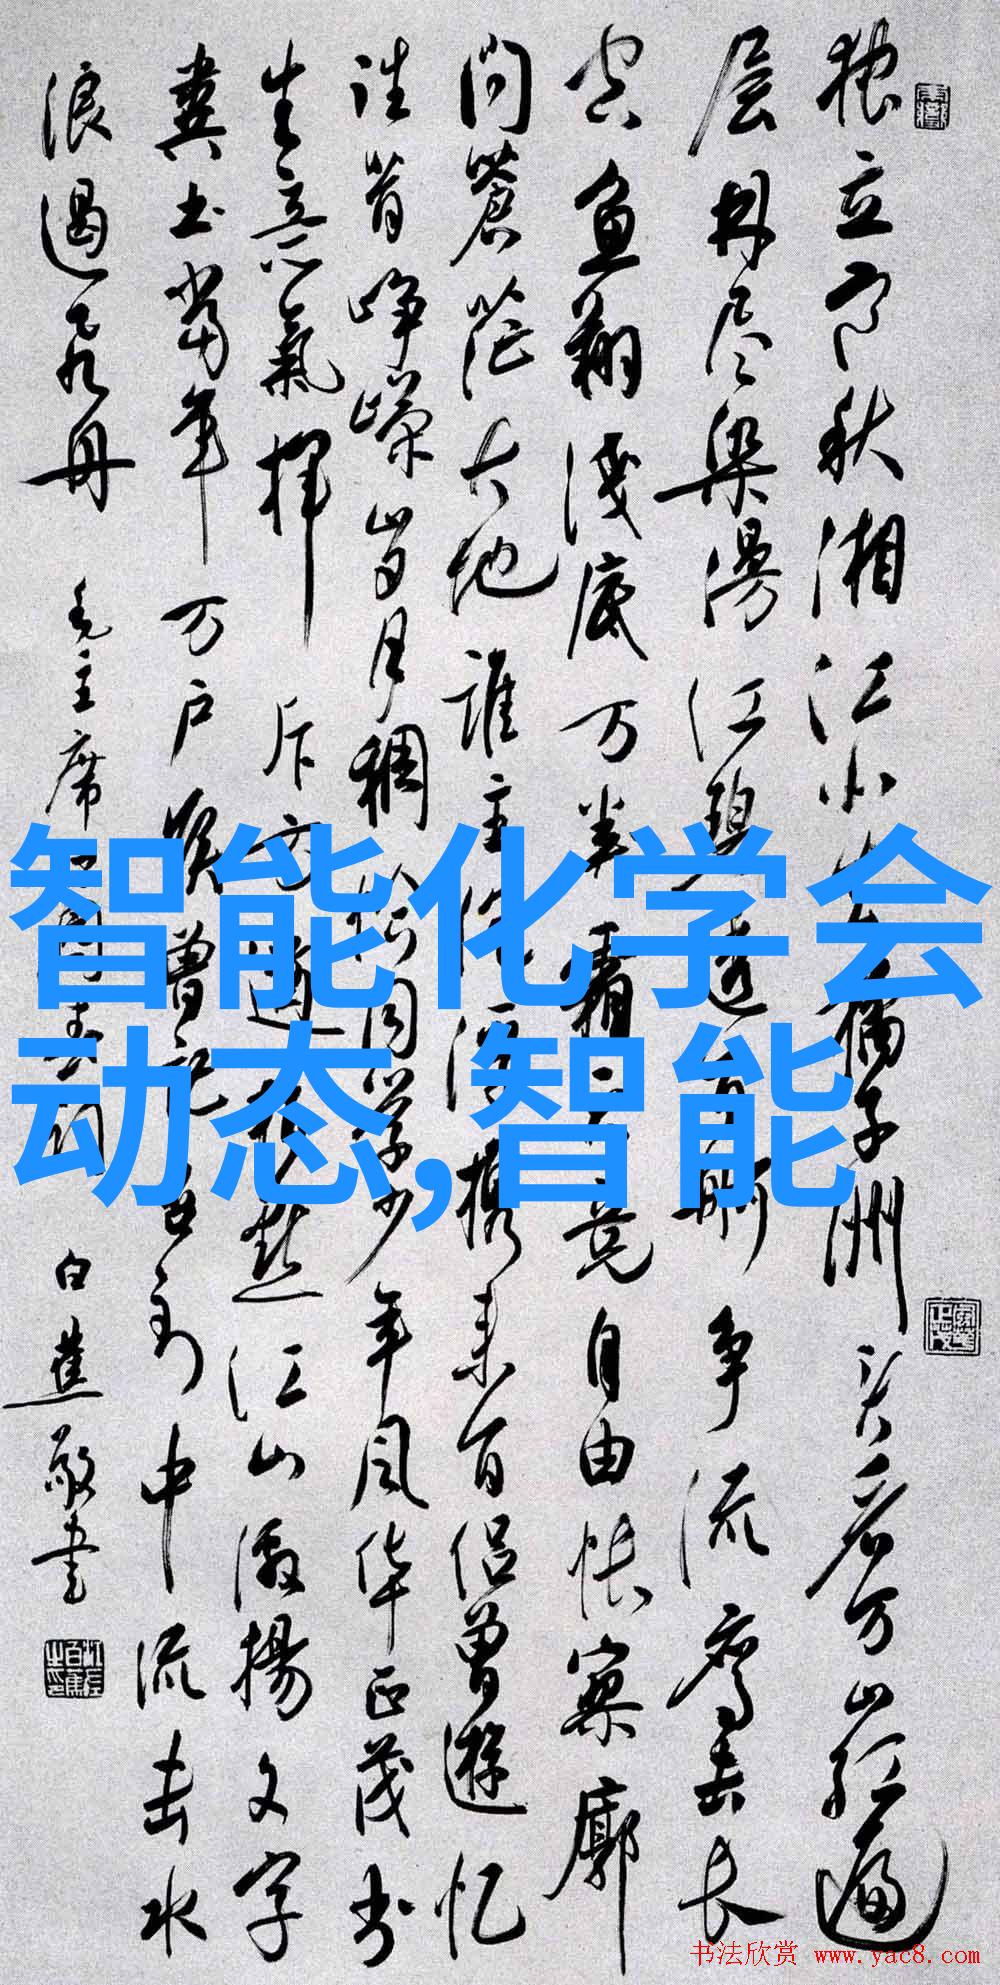 智能化学会
动态,智能
独立寒秋湘江北去橘子洲头看万山红遍
层林尽染漫江碧透百舸争流鹰击长
空鱼翔淺底万类霜天竞自由怅寥廓
问蒼茫大地谁主沉浮携来百侣曾遊忆
往昔峥嵘岁月稠恰同学少年风华正茂书
生意氣挥斥方遒指点江山激揚文字
粪土当年万户侯曾记否到中流击水
浪遏飞舟 毛主席沁园春词 白蕉敬書
书法欣赏 www.yac8.com